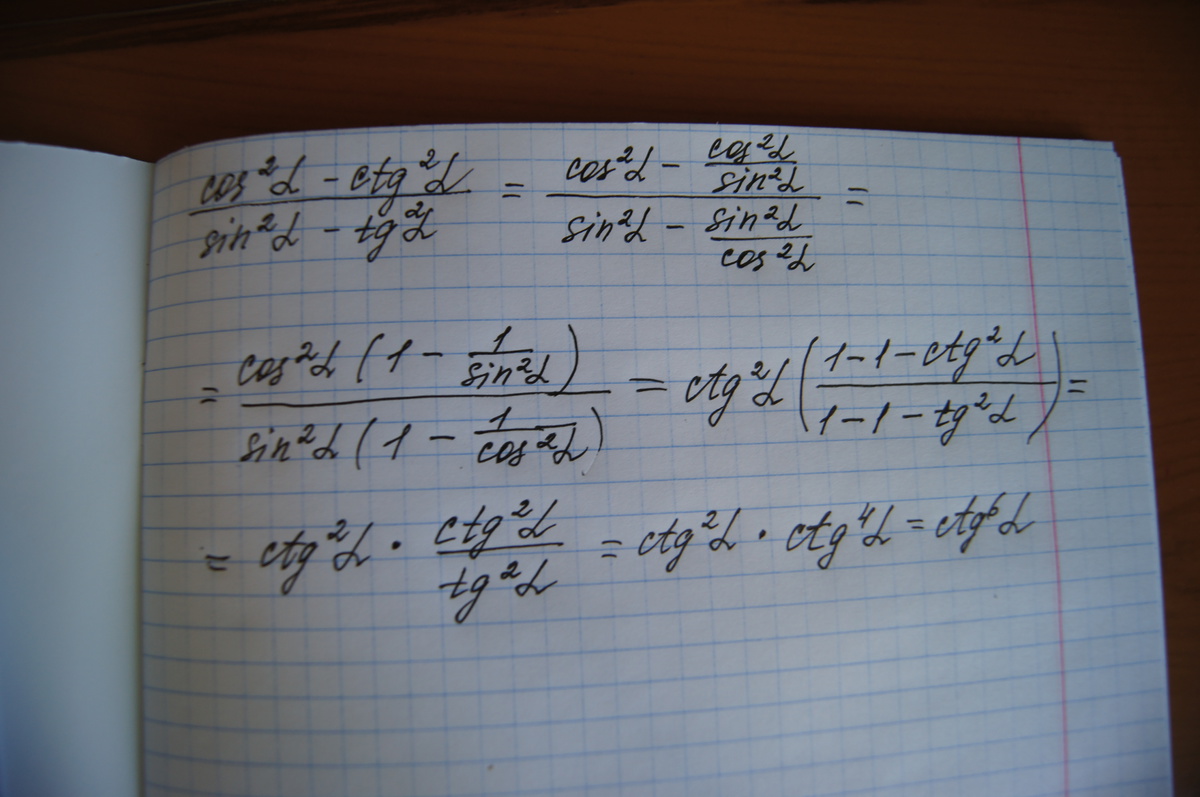 (cos²α - ctg²α)/(sin²α - tg²α) = (cos²α - cos²α/sin²α)/(sin²α - sin²α/cos²α) =
= cos²α(1 - 1/sin²α)/sin²α(1 - 1/cos²α) = ctg²α((1-1-ctg²α)/(1-1-tg²α)) =
= ctg²α · ctg²α/tg²α = ctg²α · ctg⁴α = ctg⁶α